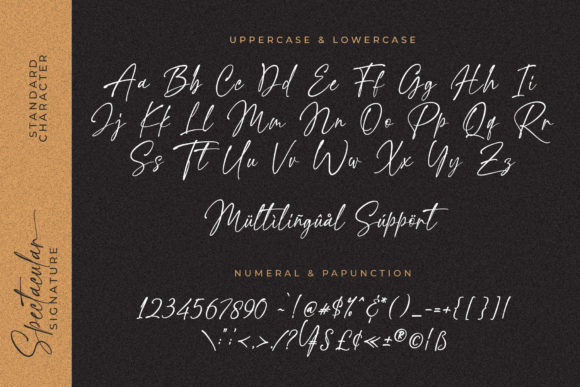 STANDARD
CHARACTER
Spectacular
SIGNATURE
UPPERCASE & LOWERCASE
Aa Bb Cc Dd Ee Ff Gg Hh Ii
Jj Kk Ll Mm Nn Oo Pp Qq Rr
Ss Tt Uu Vv Ww Xx Yy Zz
Mültìlíñgûål Súppört
NUMERAL & PAPUNCTION
1234567890 ~`!@#$%^&*()_-=+{[}]|
\:";'<,>./?¥$£¢«±®©!ß